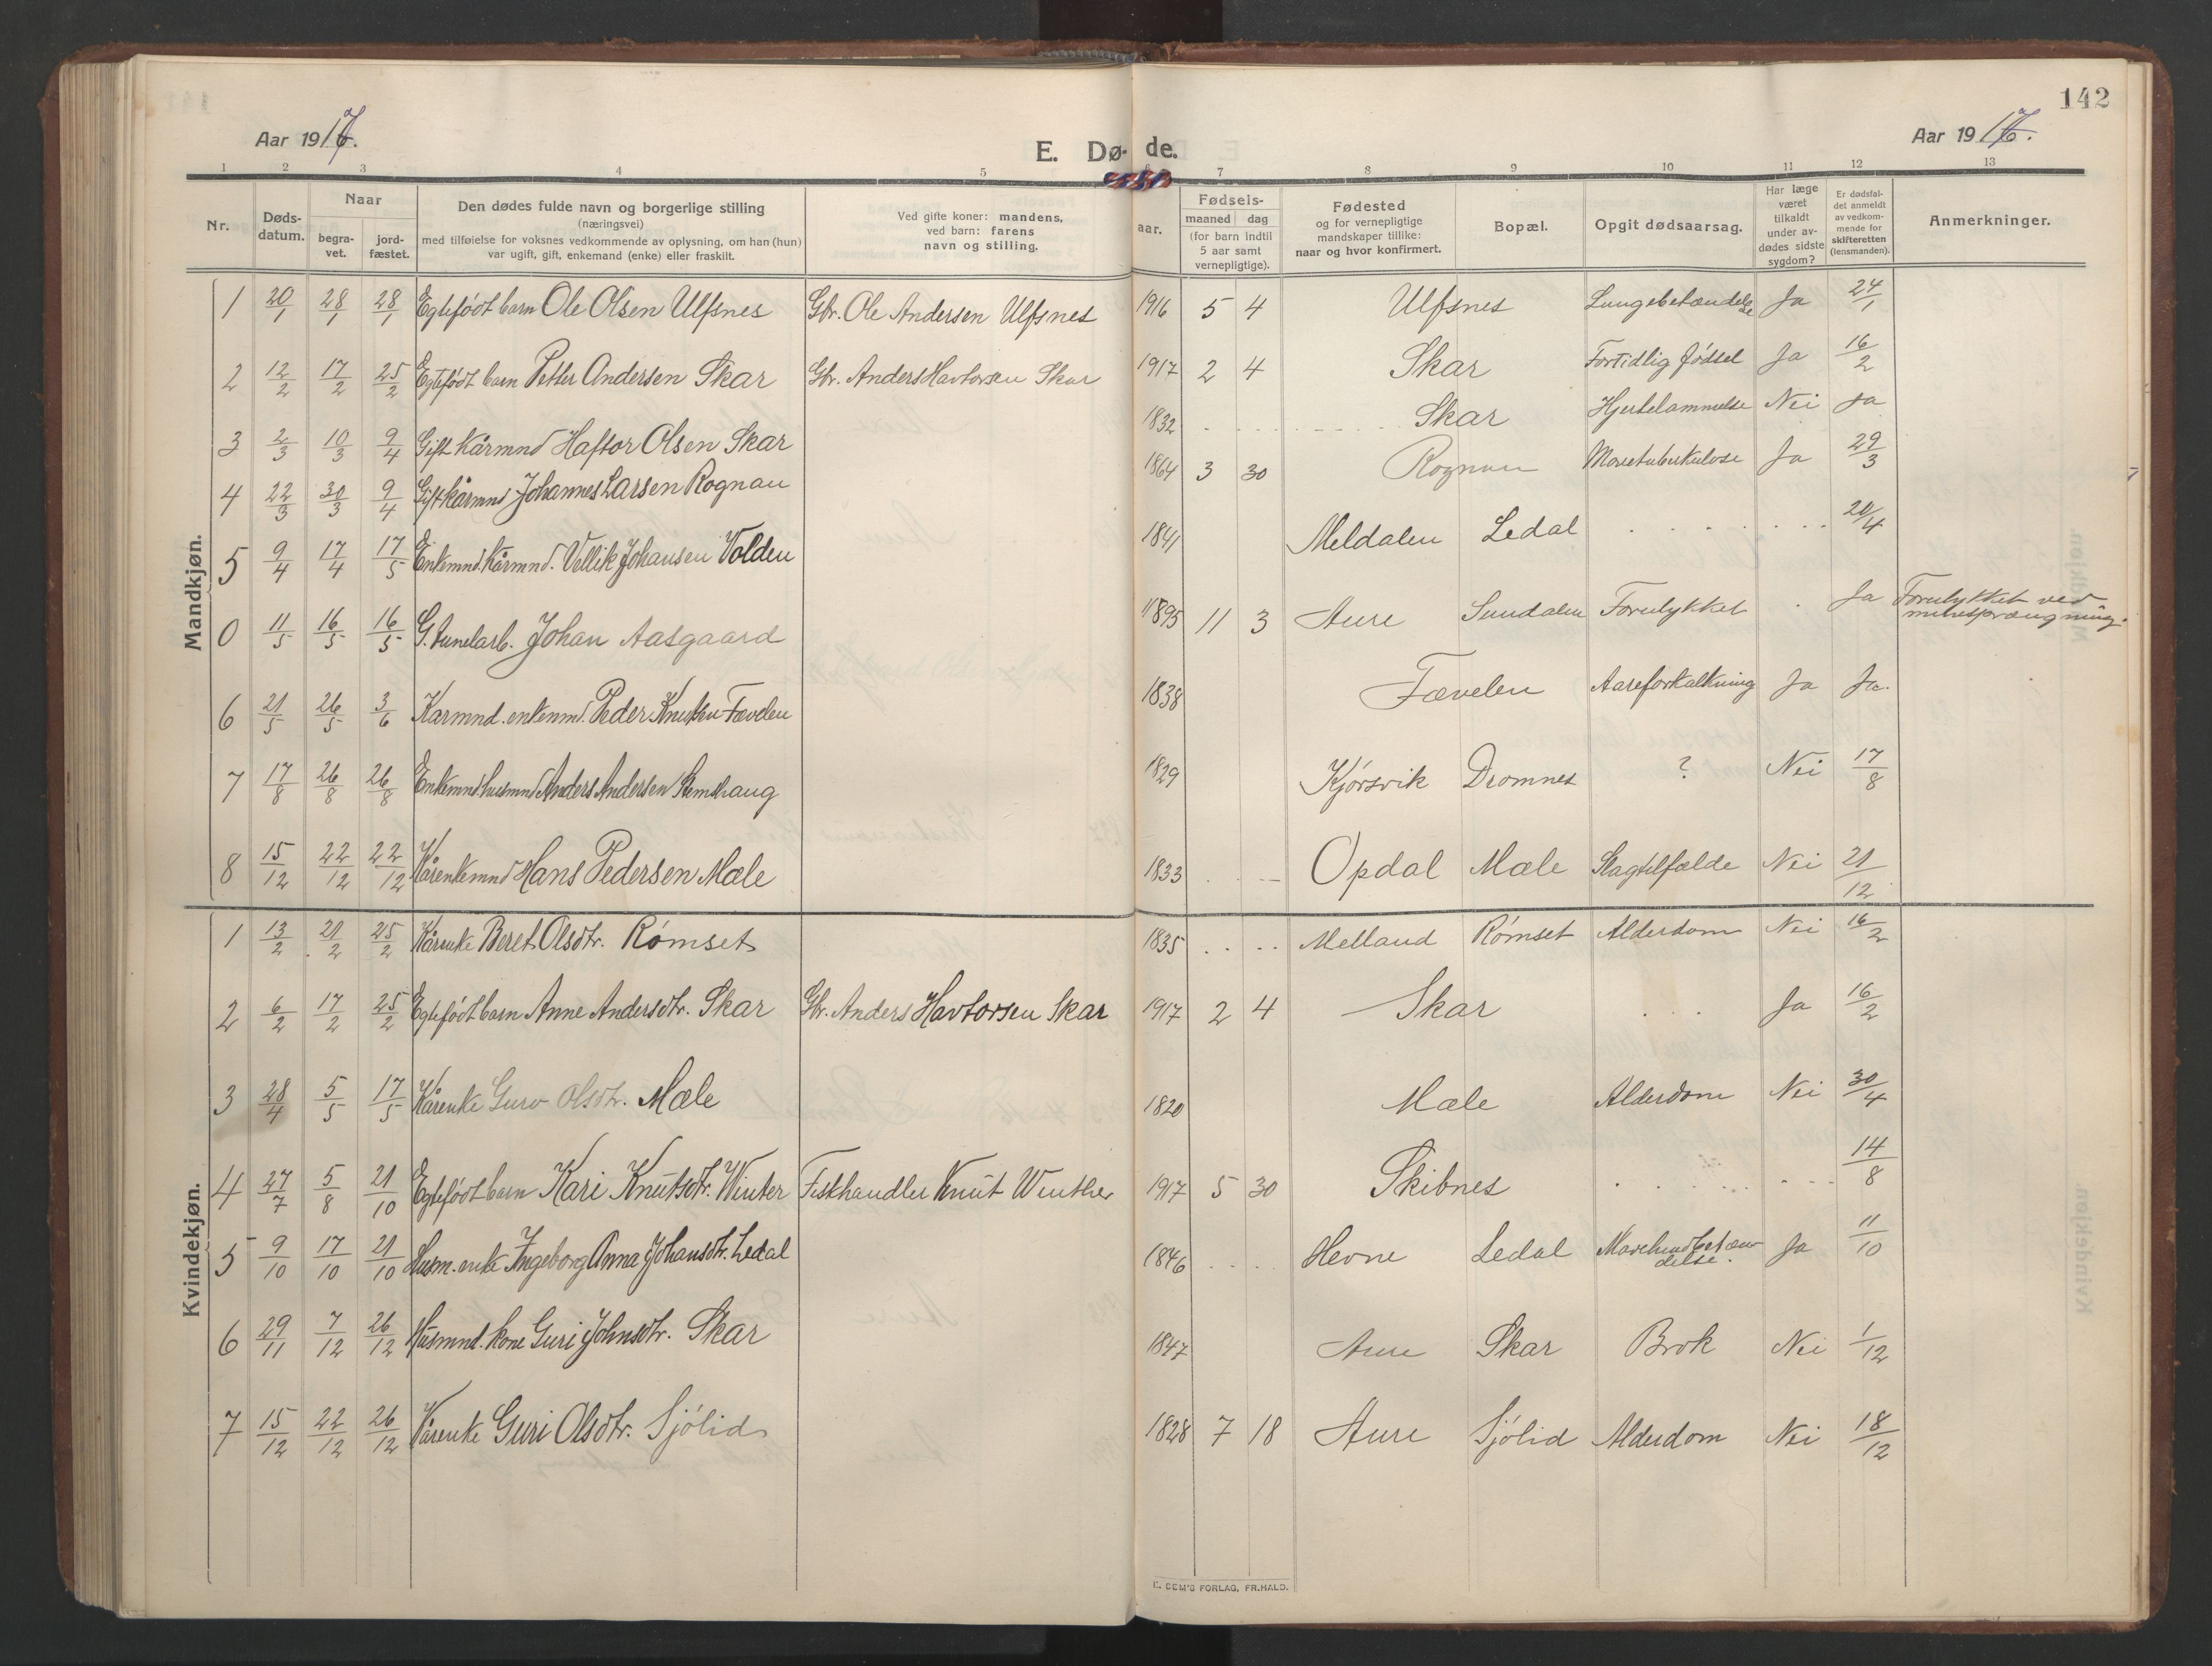 142
Aar 1917.
E. Dø- de.
Aar 1917.
1 2 3 4 5 6 7 8 9 10 11 12 13
Nr.
Døds-
datum.
Naar
begra-
vet.
jord-
fæstet.
Den dødes fulde navn og borgerlige stilling
(næringsvei)
med tilføielse for voksnes vedkommende av oplysning, om han (hun)
var ugift, gift, enkemand (enke) eller fraskilt.
Ved gifte koner: mandens,
ved barn: farens
navn og stilling.
Fødsels-
aar.
maaned dag
(for barn indtil
5 aar samt
vernepligtige).
Fødested
og for vernepligtige
mandskaper tillike:
naar og hvor konfirmert.
Bopæl.
Opgit dødsaarsag.
Har læge
været
tilkaldt
under av-
dødes sidste
sygdom?
Er dødsfal-
det anmeldt
av vedkom-
mende for
skifteretten
(lensmanden).
Anmerkninger.
Mandkjøn.
1 20/1 28/1 28/1 Egtefødt barn Ole Olsen Ulfsnes Gbr. Ole Andersen Ulfsnes 1916 5 4 Ulfsnes Lungebetændelse Ja 24/1
2 12/2 17/2 25/2 Egtefødt barn Petter Andersen Skar Gbr. Anders Havtorsen Skar 1917 2 4 Skar Fortidlig fødsel Ja 16/2
3 2/3 10/3 9/4 Gift Kårmnd Haftor Olsen Skar 1832 Skar Hjertelammelse Nei Ja
4 22/3 30/3 9/4 Gift kårmnd Johannes Larsen Rognau 1864 3 30 Rognau Mavetuberkulose Ja 29/3
5 9/4 17/4 17/5 Enkemnd. Kårmnd. Vellik Johansen Volden 1841 Meldalen Ledal 20/4
0 11/5 16/5 16/5 G. tunelarb. Johan Aasgaard 1895 11 3 Aure Sundalen Forulykket Ja Forulykket ved
minesprængning.
6 21/5 26/5 3/6 Karmnd. enkemnd. Peder Knutsen Fævelen 1838 Fævelen Aareforkalkning Ja Ja.
7 17/8 26/8 26/8 Enkemnd. husmnd Anders Andersen Stemshaug 1829 Kjørsvik Dromnes ? Nei 17/8
8 15/12 22/12 22/12 Kårenkemnd Hans Pedersen Mæle 1833 Opdal Mæle Slagtilfælde Nei 21/12
Kvindekjøn.
1 13/2 21/2 25/2 Kårenke Beret Olsdtr. Rømset 1835 Melland Rømset Alderdom Nei 16/2
2 6/2 17/2 25/2 Egtefødt barn Anne Andersdtr. Skar Gbr. Anders Havtorsen Skar 1917 2 4 Skar Ja 16/2
3 28/4 5/5 17/5 Kårenke Guro Olsdtr. Mæle 1820 Mæle Alderdom Nei 30/4
4 27/7 5/8 21/10 Egtefødt barn Kari Knutsdtr. Winter Fiskhandler Knut Winther 1917 5 30 Skibnes 14/8
5 9/10 17/10 21/10 Husm. enke Ingeborg Anna Johansdtr. Ledal 1846 Hevne Ledal Ja 11/10
6 29/11 7/12 26/12 Husmnd. kone Guri Johnsdtr. Skar 1847 Aure Skar Brok Nei 1/12
7 15/12 22/12 26/12 Kårenke Guri Olsdtr. Sjølid 1828 7 18 Aure Sjølid Alderdom Nei 18/12
E. SEM'S FORLAG, FR.HALD.